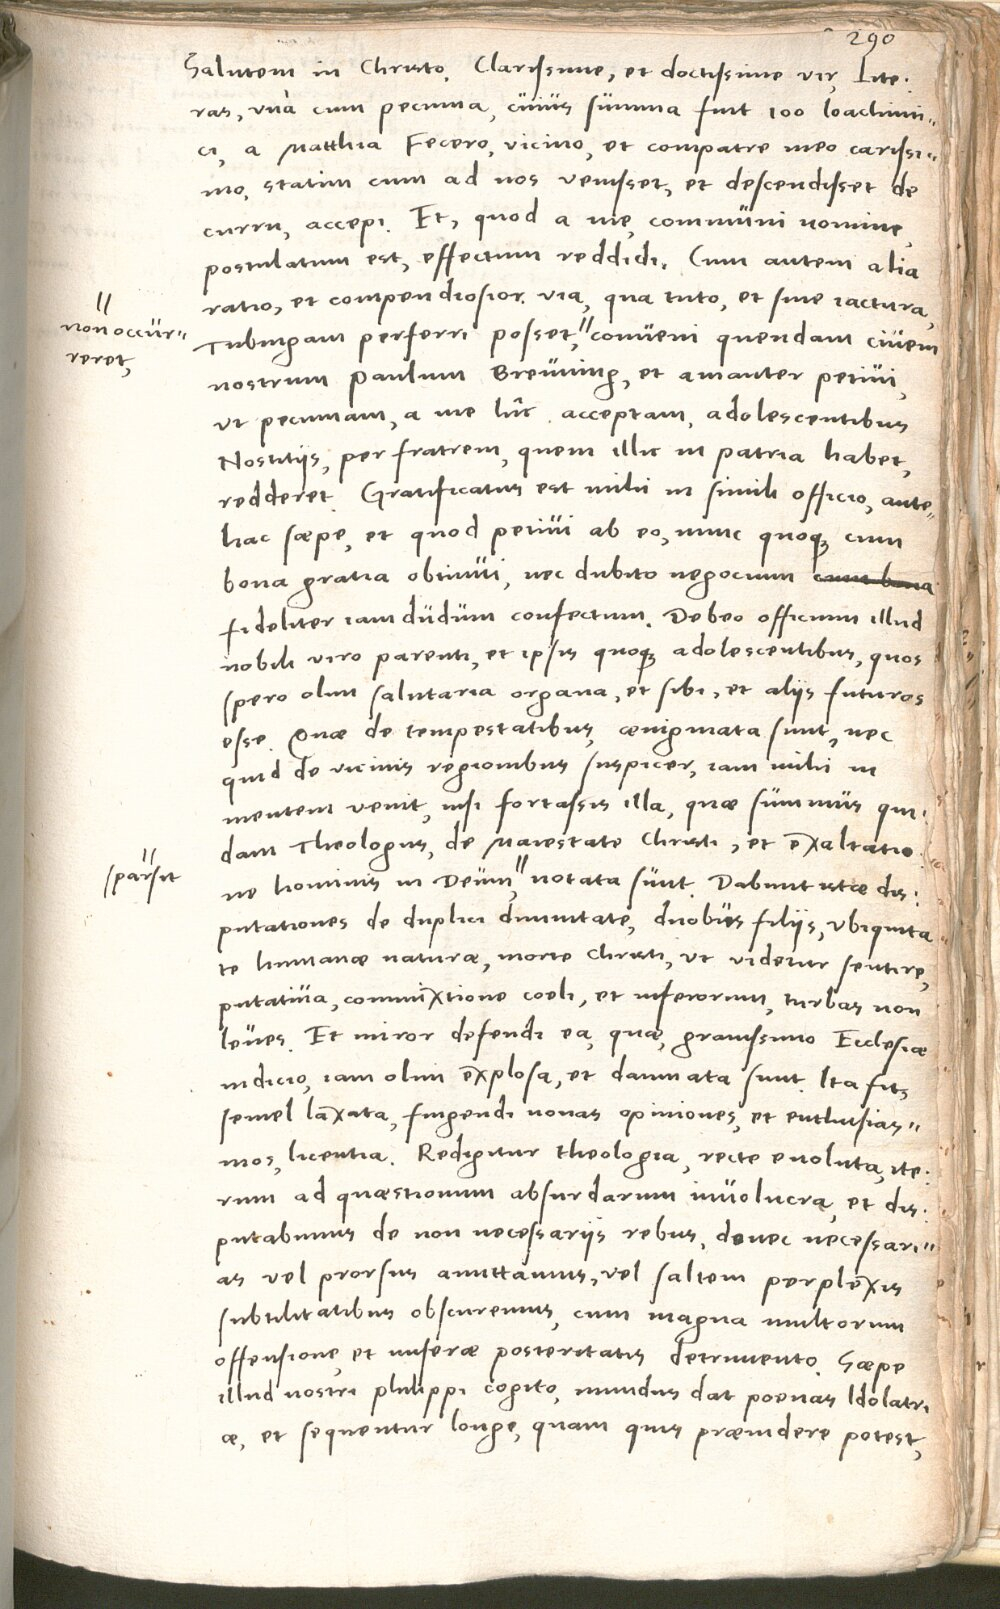 290
Salutem in Christo. Clarissime, et doctissime vir, Lite:
ras, vnà cum pecunia, cuius summa fuit 100 Ioachimi=
ci, a Matthia Fecero, vicino, et compatre meo carissi=
mo, statim cum ad nos venisset, et descendisset de
curru, accepi. Et, quod a me, communi nomine,
postulatum est, effectum reddidi. Cum autem alia
ratio, et compendiosior via, qua tuto, et sine iactura,
non occur=
reret,
Tubingam perferri posset," conueni quendam ciuem
nostrum Paulum Breuning, et amanter petiui,
vt pecuniam, a me hîc acceptam, adolescentibus
Nostitijs, per fratrem, quem illic in patria habet,
redderet. Gratificatus est mihi in simili officio, ante=
hac sæpe, et quod petiui ab eo, nunc quoq; cum
bona gratia obtinui, nec dubito negocium cum bona
fideliter iamdudum confectum. Debeo officium illud
nobili viro parenti, et ipsis quoq; adolescentibus, quos
spero olim salutaria organa, et sibi, et alijs futuros
esse. Quæ de tempestatibus, ænigmata sunt, nec
quid de vicinis regionibus suspicer, iam mihi in
mentem venit, nisi fortassis illa, quæ summus qui:
dam Theologus, de Maiestate Christi, et exaltatio:
sparsit
ne hominis in Deum," notata sunt. Dabunt istæ dis:
putationes de duplici diuinitate, duobus filijs, vbiquita
te humanæ naturæ, morte Christi, vt videtur sentire,
putatiua, commixtione coeli, et inferorum, turbas non
leues. Et miror defendi ea, quæ, grauissimo Ecclesiæ
iudicio, iam olim explosa, et damnata sunt. Ita fit,
semel laxata, fingendi nouas opiniones, et enthusias=
mos, licentia. Redigitur theologia, recte euoluta, ite:
rum ad quæstionum absurdarum inuolucra, et dis:
putabimus de non necessarijs rebus, donec necessari=
as vel prorsus amittamus, vel saltem perplexis
subtilitatibus obscuremus, cum magna multorum
offensione, et miseræ posteritatis detrimento. Sæpe
illud nostri Philippi cogito, mundus dat poenas Idolatri
æ, et sequentur longe, quam quis præuidere potest,